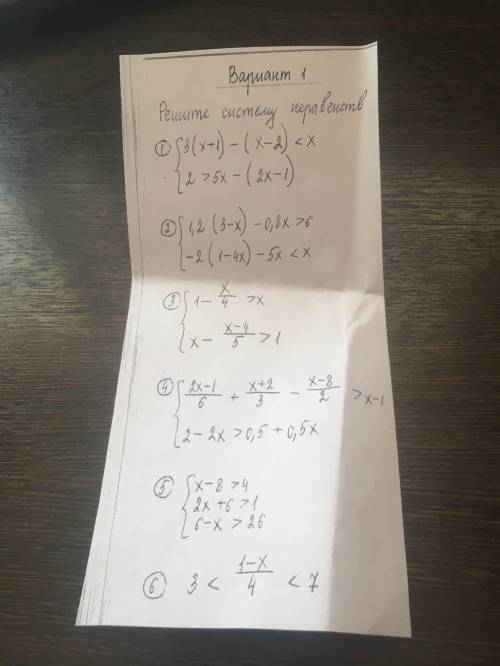 Вариант 1
Решите систему неравенств
① { 3(x+1) - (x-2) < x
2 > 5x - (2x-1)
② { 1,2 (3-x) - 0,8x > 6
-2(1-4x) - 5x < x
③ { 1 - x/4 > x
x - (x-4)/5 > 1
④ { (2x-1)/6 + (x+2)/3 - (x-8)/2 > x-1
2 - 2x > 0,5 + 0,5x
⑤ { x-8 > 4
2x+6 > 1
6-x > 26
⑥ 3 < (1-x)/4 < 7